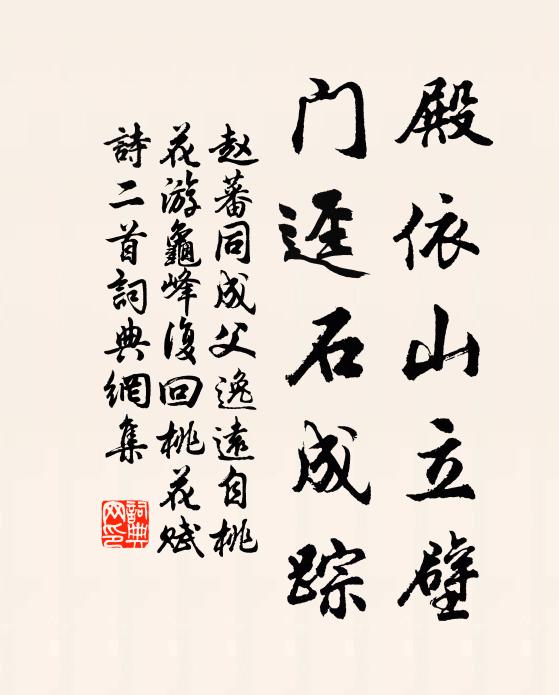 殿依山立壁
门逕石成踪
赵蕃同成父逸遠自桃
花游龜峰復回桃花赋
詩二首詞典網集
詞典
网印